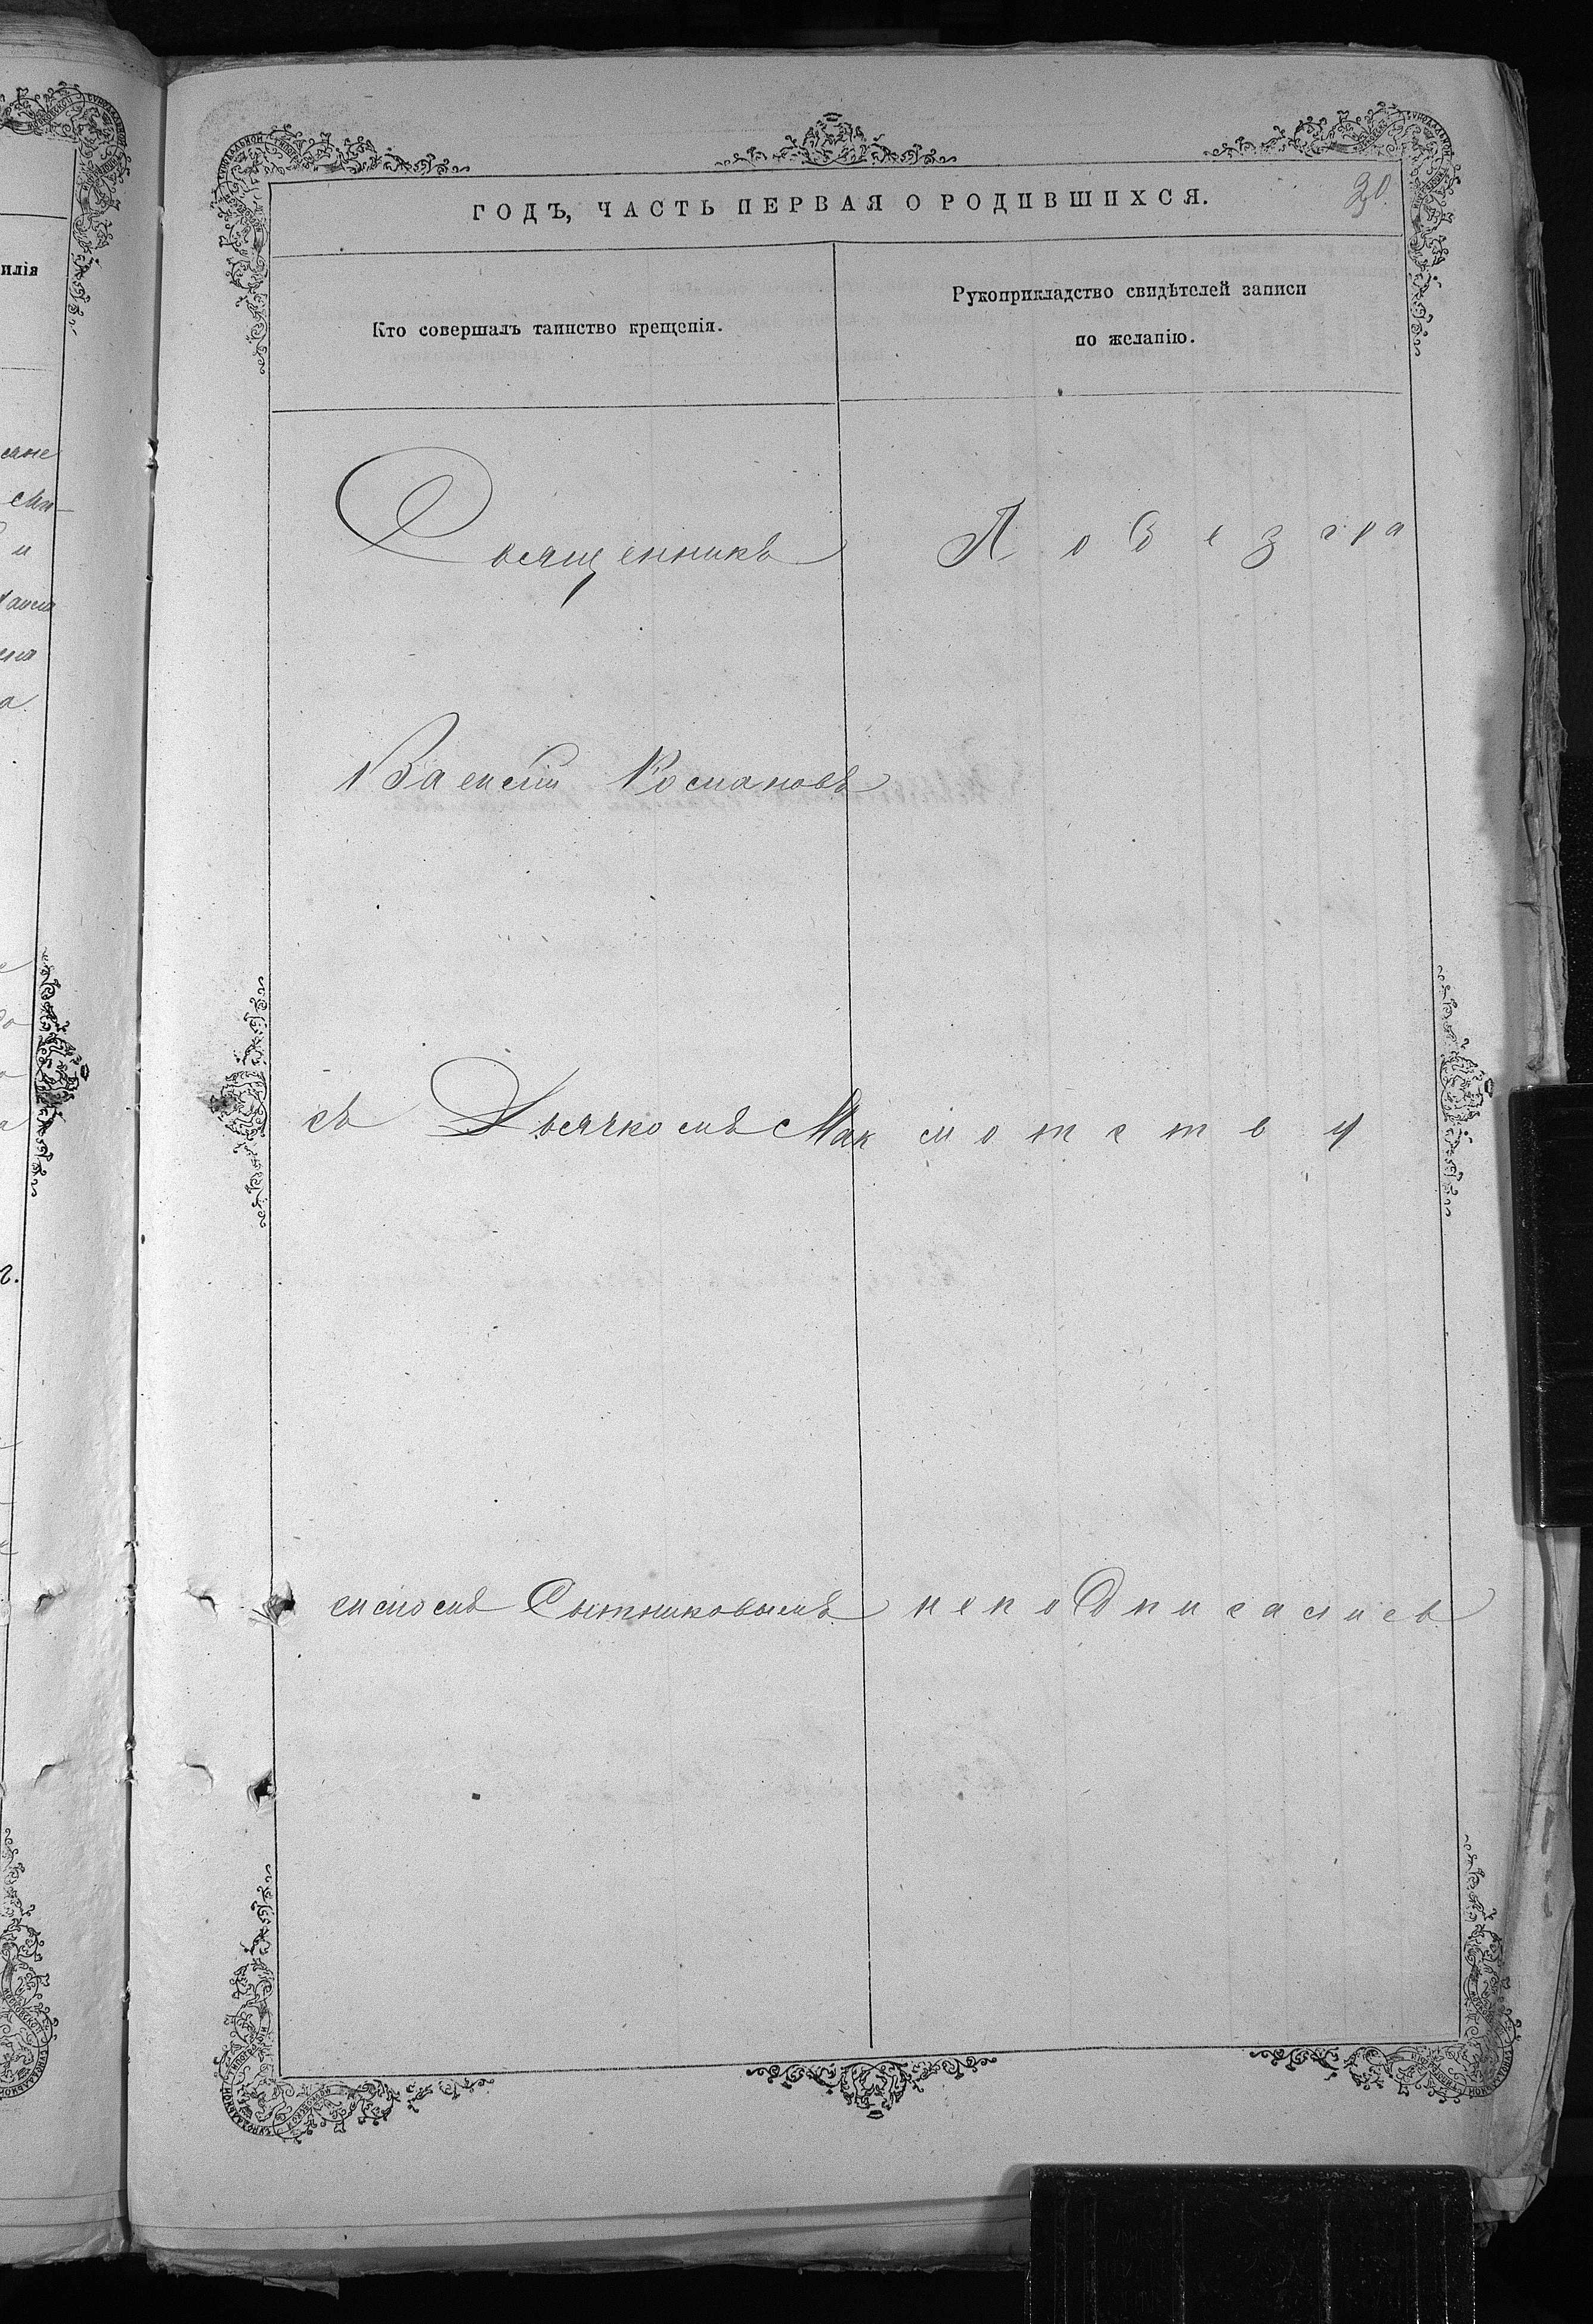 ГОДЪ, ЧАСТЬ ПЕРВАЯ О РОДИВШИХСЯ.
30.
илія
Кто совершалъ таинство крещенія.
Рукоприкладство свидѣтелей записи
по желанію.
Священникъ
По безгра
Василій Космановъ
съ Дьячкомъ Мак
мотству
симомъ Сытниковымъ
неподписались